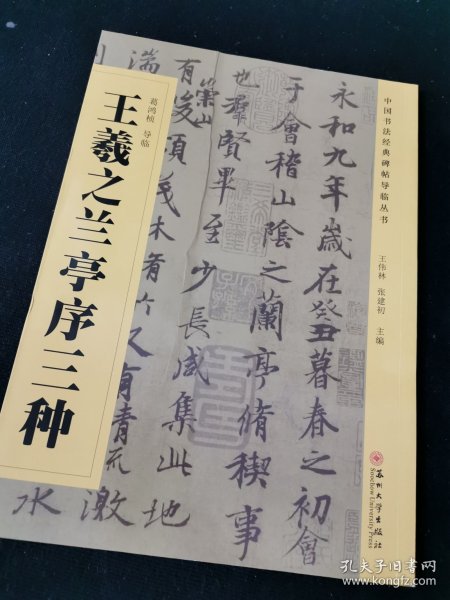 中国书法经典碑帖导临丛书
王伟林 张建初 主编
永和九年歲在癸丑暮春之初會
于會稽山陰之蘭亭脩稧事
也羣賢畢至少長咸集此地
有崇山峻領茂林脩竹又有清流激
湍
水
葛鸿桢 导临
王羲之兰亭序三种
苏州大学出版社
Soochow University Press
孔夫子旧书网
www.kongfz.com